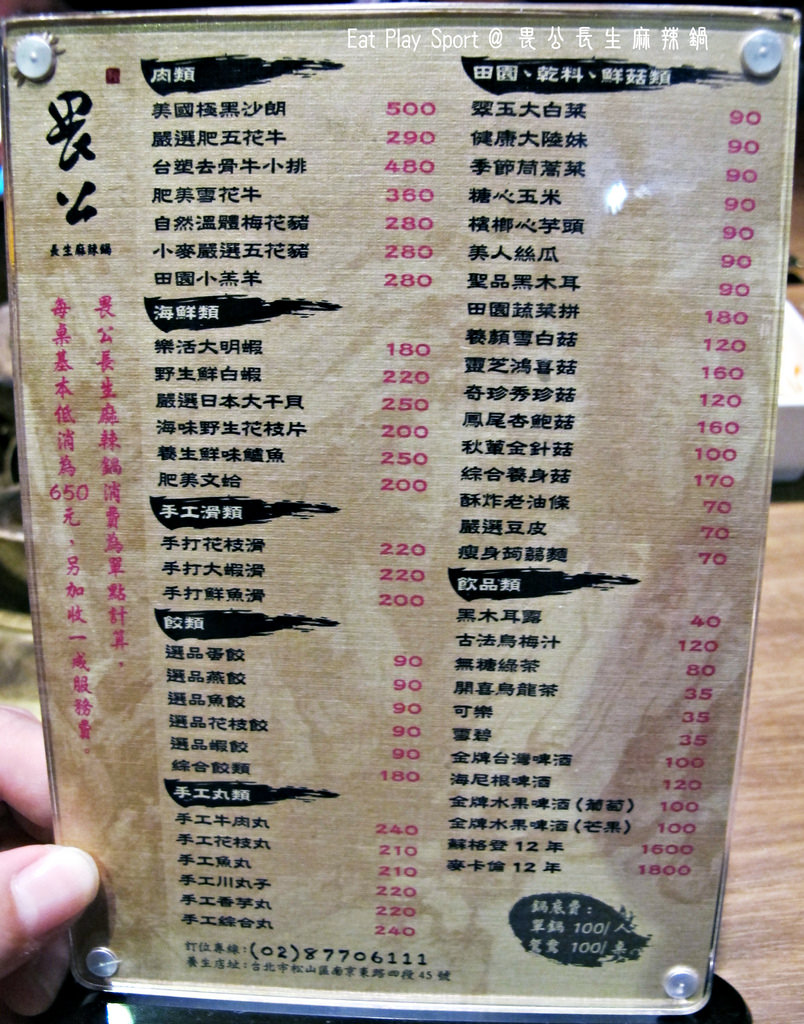 Eat Play Sport @ 畏公長生麻辣鍋
畏公
長生麻辣鍋
畏公長生麻辣鍋消費為單點計算，
每桌基本低消為650元，另加收一成服務費。
肉類
美國極黑沙朗 500
嚴選肥五花牛 290
台塑去骨牛小排 480
肥美雪花牛 360
自然溫體梅花豬 280
小麥嚴選五花豬 280
田園小羔羊 280
海鮮類
樂活大明蝦 180
野生鮮白蝦 220
嚴選日本大干貝 250
海味野生花枝片 200
養生鮮味鱸魚 250
肥美文蛤 200
手工滑類
手打花枝滑 220
手打大蝦滑 220
手打鮮魚滑 200
餃類
選品蛋餃 90
選品燕餃 90
選品魚餃 90
選品花枝餃 90
選品蝦餃 90
綜合餃類 180
手工丸類
手工牛肉丸 240
手工花枝丸 210
手工魚丸 210
手工川丸子 220
手工香芋丸 220
手工綜合丸 240
田園、乾料、鮮菇類
翠玉大白菜 90
健康大陸妹 90
季節茼蒿菜 90
糖心玉米 90
檳榔心芋頭 90
美人絲瓜 90
聖品黑木耳 90
田園蔬菜拼 180
養顏雪白菇 120
靈芝鴻喜菇 160
奇珍秀珍菇 120
鳳尾杏鮑菇 160
秋葷金針菇 100
綜合養身菇 170
酥炸老油條 70
嚴選豆皮 70
瘦身蒟蒻麵 70
飲品類
黑木耳露 40
古法烏梅汁 120
無糖綠茶 80
開喜烏龍茶 35
可樂 35
雪碧 35
金牌台灣啤酒 100
海尼根啤酒 120
金牌水果啤酒(葡萄) 100
金牌水果啤酒(芒果) 100
蘇格登12年 1600
麥卡倫12年 1800
鍋底費：
單鍋 100/人
鴛鴦 100/桌
訂位專線：(02)87706111
養生店址：台北市松山區南京東路四段45號